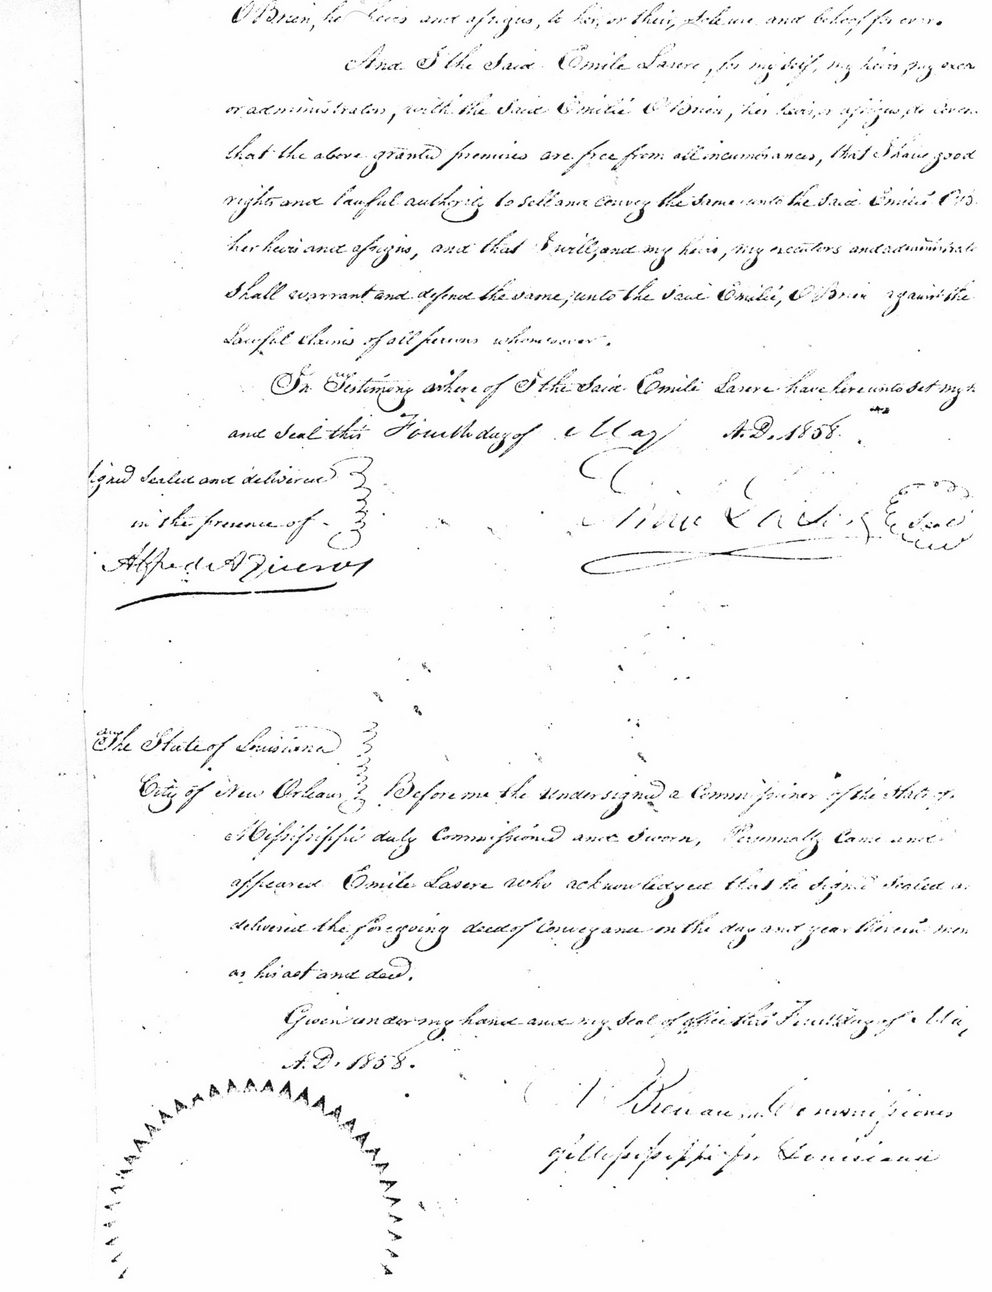 O'Brien, he heirs and assigns, to her, or their, sole use and behoof for ever.
And I the Said Emile Lasere, for my self, my heirs, my exea
or administrators, with the Said Emilié O'Brien, her heirs, assigns, do coven
that the above granted premises are free from all incumbrances, that I have good
rights and lawful authority to sell and convey the same unto the said Emilié O'B
her heirs and assigns, and that I will, and my heirs, my excutors and administrato
Shall warrant and defend the same, unto the Said Emilié, O'Brien against the
Lawful claims of all persons whomsoever.
In Testimony where of I the Said Emile Lasere have hereunto set my h
and Seal this Fourth day of May A.D. 1858.
igned Sealed and delivered
in the presence of
Emile LaSere Seal
Alfred A
The State of Louisiana
City of New Orleans Before me the undersigned a Commissioner of the State of
Mississippi duly Commissioned and Sworn, Personnally Came and
appeared Emile Lasere who acknowledged that he Signed Sealed a
delivered the foregoing deed of Conveyance on the day and year therein men
as his act and deed.
Given under my hand and my Seal of office this Fourth day of Ma
A.D. 1858.
Commissioner
of Mississippi for Louisiana